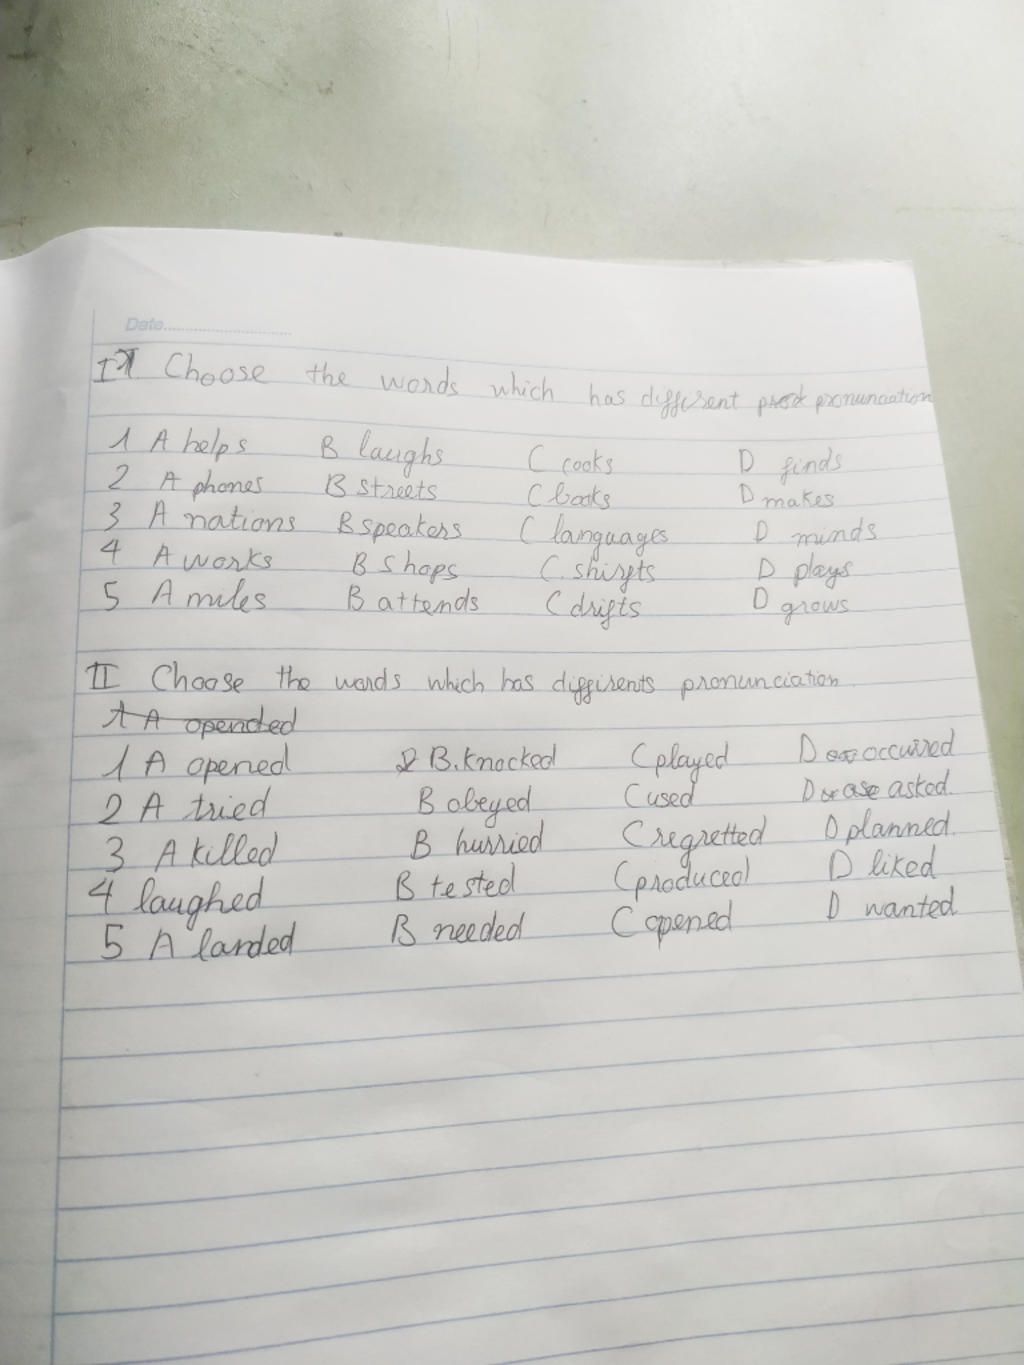 Date
II Choose the words which has different pronunciation
1 A helps B laughs C cooks D finds
2 A phones B streets C books D makes
3 A nations B speakers C languages D minds
4 A works B shops C. shirfts D plays
5 A miles B attends C drifts D grows
II Choose the words which has diffirents pronunciation
1 A opended
1 A opened B. knocked C played D occurred
2 A tried B obeyed C used D asked.
3 A killed B hurried C regretted D planned.
4 laughed B tested C produced D liked
5 A landed B needed C opened D wanted.